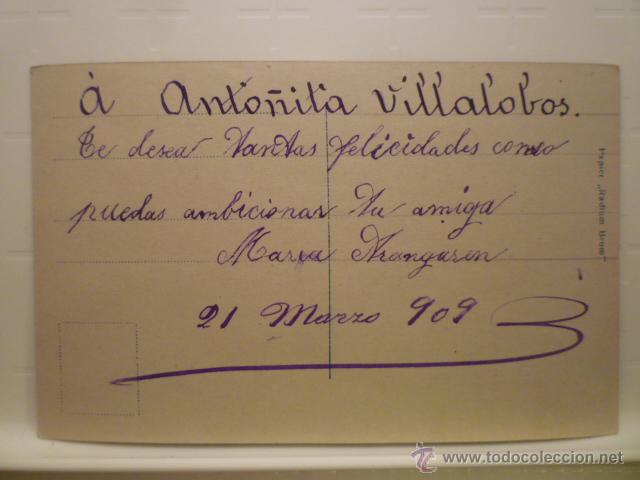 à Antoñita Villalobos.
Te desea tantas felicidades como
puedas ambicionar tu amiga
Maria Aranguren
21 Marzo 909
www.todocoleccion.net